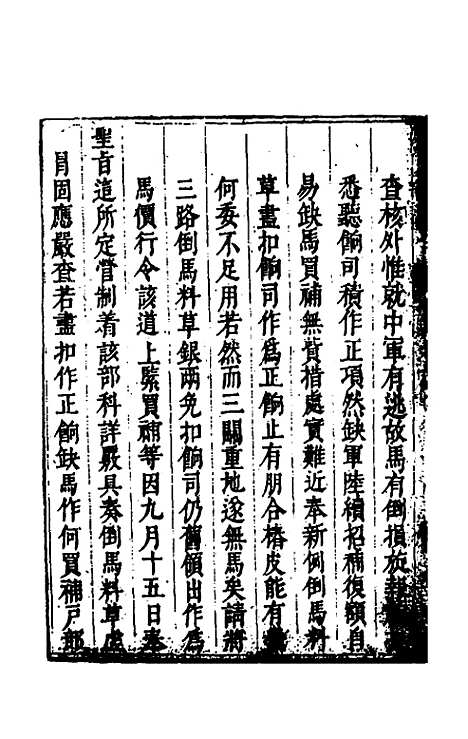 查核外惟就中軍有逃故馬有倒損旋報
悉聽餉司積作正項然缺軍陸續招補復額自
易缺馬買補無貲措處實難近奉新例倒馬料
草盡扣餉司作爲正餉止有朋合樁皮能有
何委不足用若然而三關重地遂無馬矣請將
三路倒馬料草銀兩免扣餉司仍舊領出作爲
馬價行令該道上緊買補等因九月十五日奉
聖旨這所定營制着該部科詳嚴具奏倒馬料草虛
冐固應嚴查若盡扣作正餉缺馬作何買補戸部